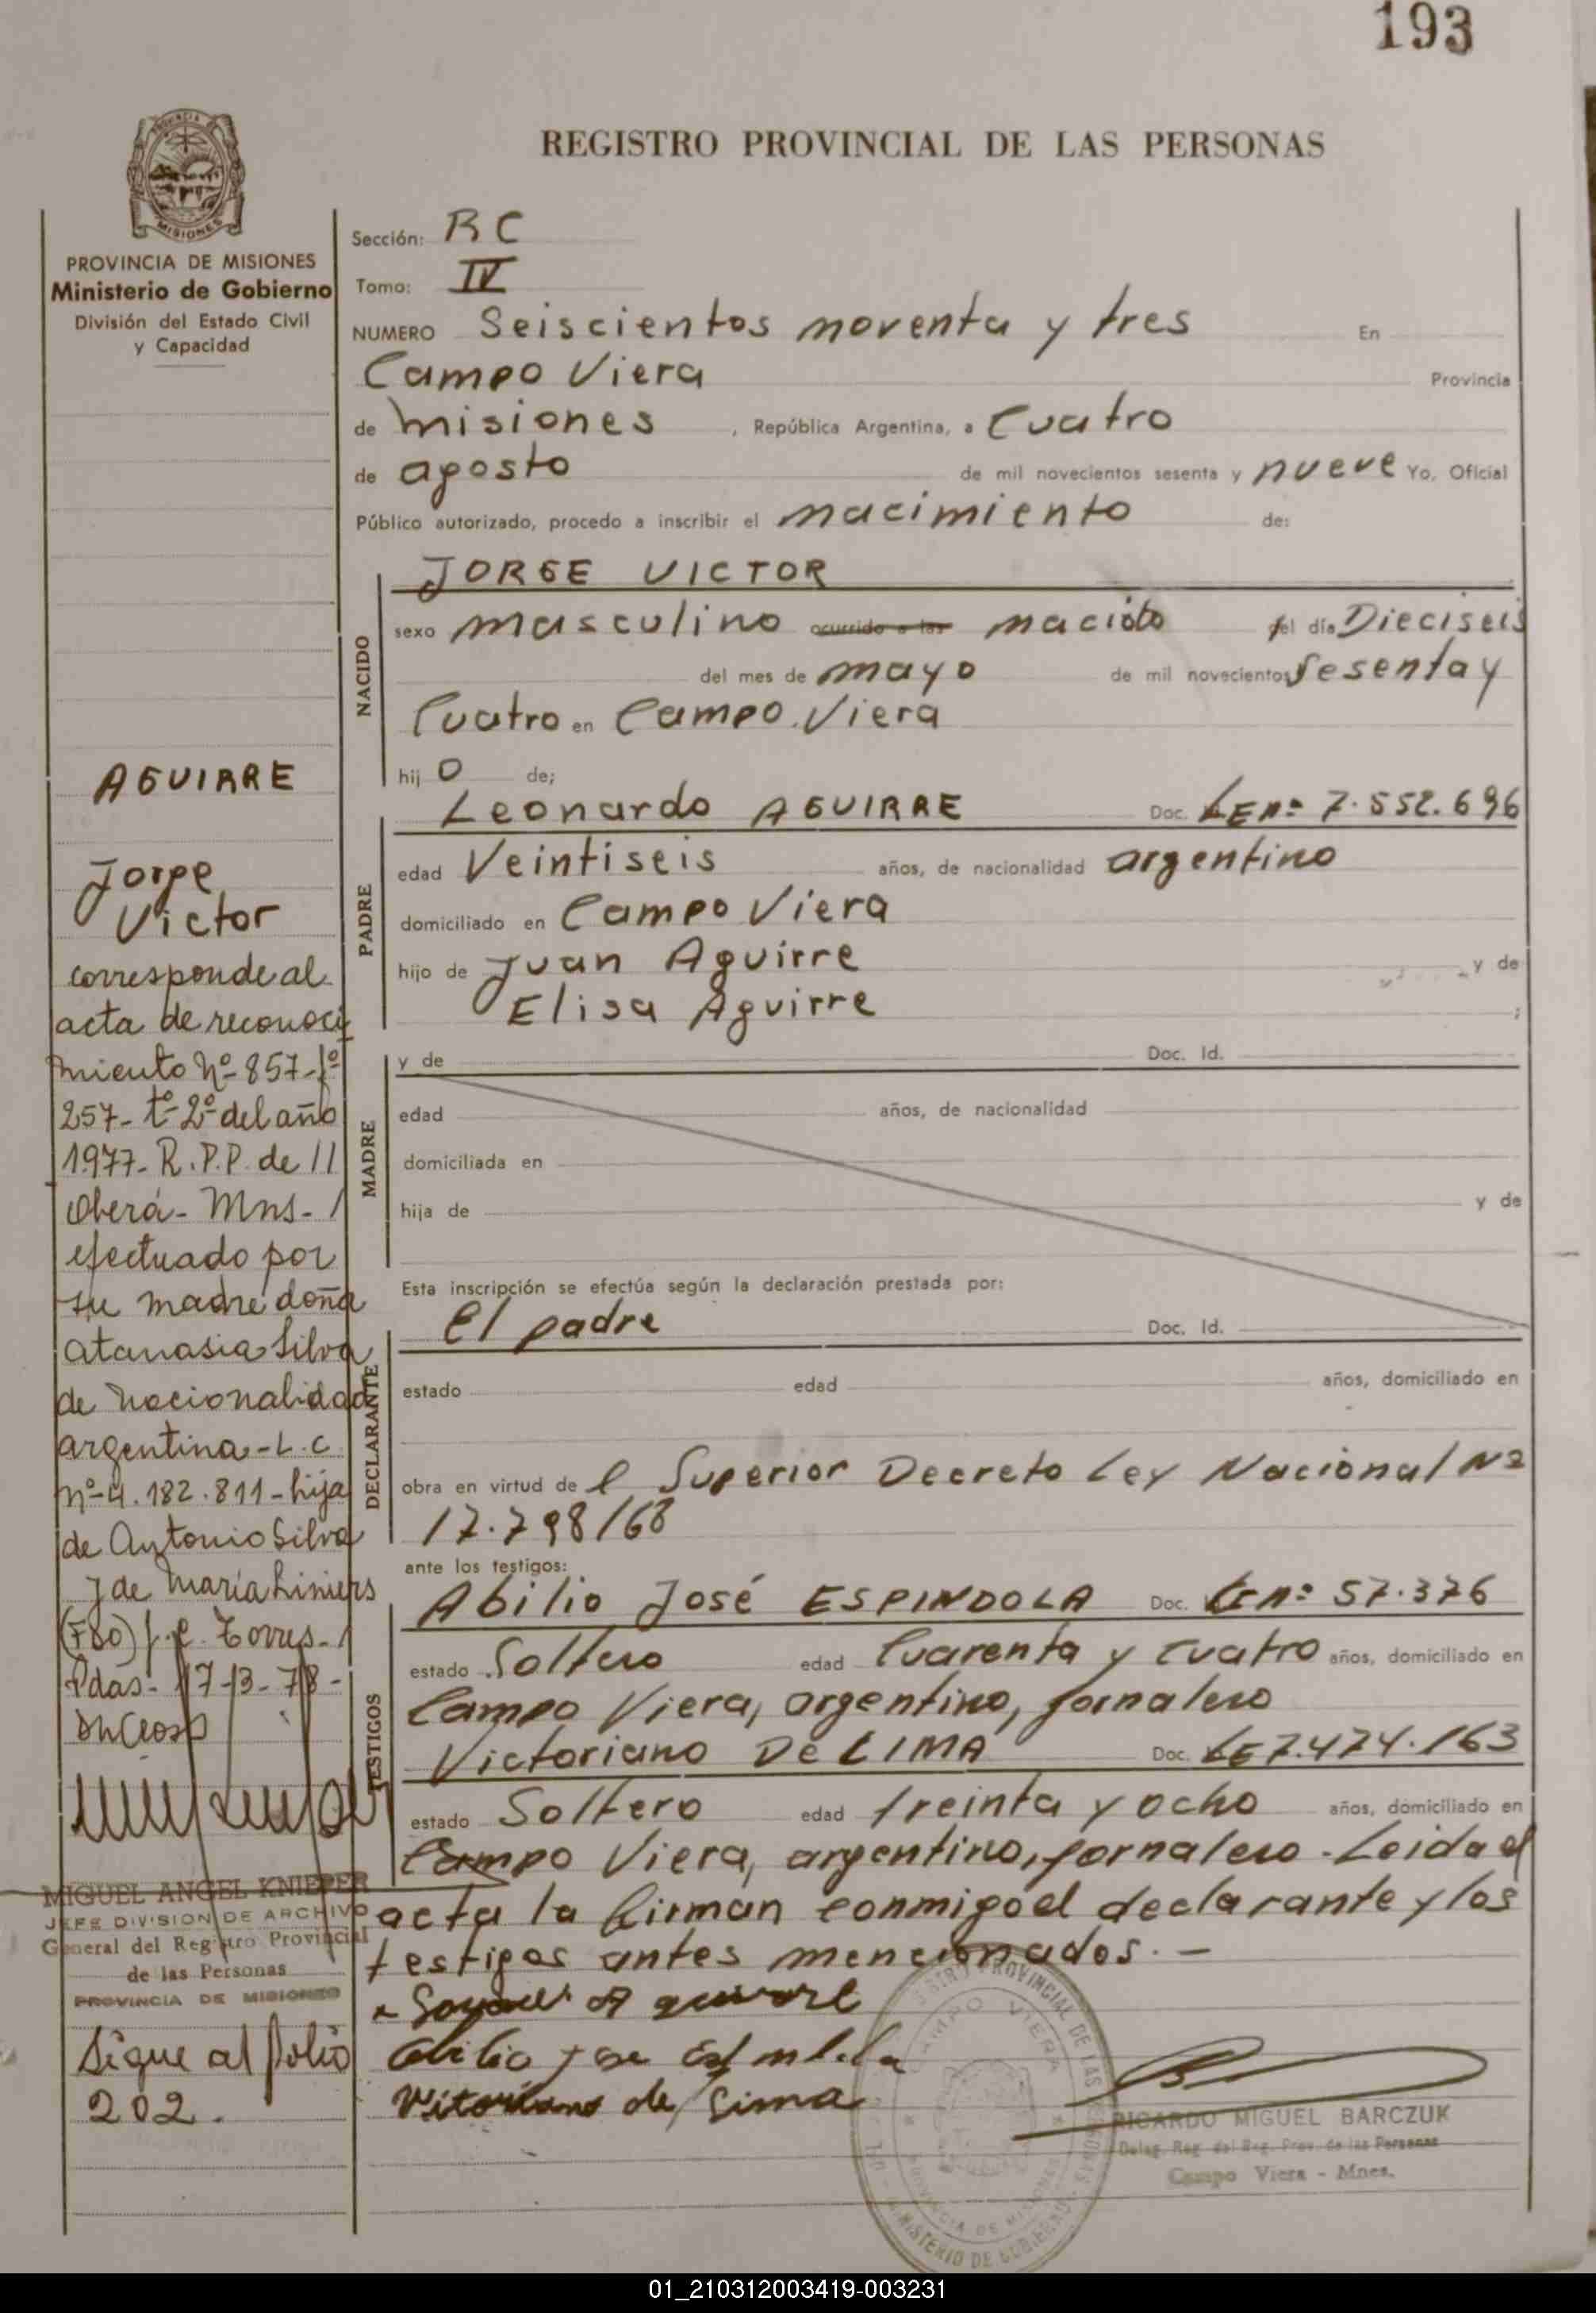 193
REGISTRO PROVINCIAL DE LAS PERSONAS
MISIONES
PROVINCIA DE MISIONES
Ministerio de Gobierno
División del Estado Civil
y Capacidad
Sección: RC
Tomo: IV
NUMERO Seiscientos noventa y tres En
Campo Viera Provincia
de misiones , República Argentina, a Cuatro
de agosto de mil novecientos sesenta y nueve Yo, Oficial
Público autorizado, procedo a inscribir el nacimiento de:
NACIDO
JORGE VICTOR
sexo masculino ocurrido a las nacido el día Dieciseis
del mes de mayo de mil novecientos sesenta y
Cuatro en Campo Viera
hij o de;
PADRE
Leonardo AGUIRRE Doc. LE nº 7.552.696
edad Veintiseis años, de nacionalidad argentino
domiciliado en Campo Viera
hijo de Juan Aguirre y de
Elisa Aguirre ;
MADRE
y de Doc. Id.
edad años, de nacionalidad
domiciliada en
hija de y de
Esta inscripción se efectúa según la declaración prestada por:
DECLARANTE
El padre Doc. Id.
estado edad años, domiciliado en
obra en virtud de l Superior Decreto Ley Nacional Nº
17.798/68
ante los testigos:
TESTIGOS
Abilio José ESPINDOLA Doc. nº 57.376
estado Soltero edad Cuarenta y cuatro años, domiciliado en
Campo Viera, argentino, jornalero
Victoriano De LIMA Doc. LE 7.474.163
estado Soltero edad treinta y ocho años, domiciliado en
Campo Viera, argentino, jornalero - Leida el
acta la firman conmigo el declarante y los
testigos antes mencionados. -
Vitoriano de Lima
AGUIRRE
Jorge
Victor
corresponde al
acta de reconoci
miento nº 857-fº
257- tº 2º del año
1977- R.P.P. de //
Oberá- Mns- /
efectuado por
su madre doña
Atanasia Silva
de nacionalidad
argentina-L.C.
nº 4.182.811-hija
de Antonio Silva
y de María Liniers
(Fdo) Torres- /
Pdas- 17-3-78-
MIGUEL ANGEL KNIEPER
JEFE DIVISION DE ARCHIVO
General del Registro Provincial
de las Personas
PROVINCIA DE MISIONES
Sigue al folio
202.
REGISTRO PROVINCIAL DE LAS PERSONAS
CAMPO VIERA
PROVINCIA DE MISIONES
MINISTERIO DE GOBIERNO
RICARDO MIGUEL BARCZUK
Deleg. Reg. del Reg. Prov. de las Personas
Campo Viera - Mnes.
01_210312003419-003231